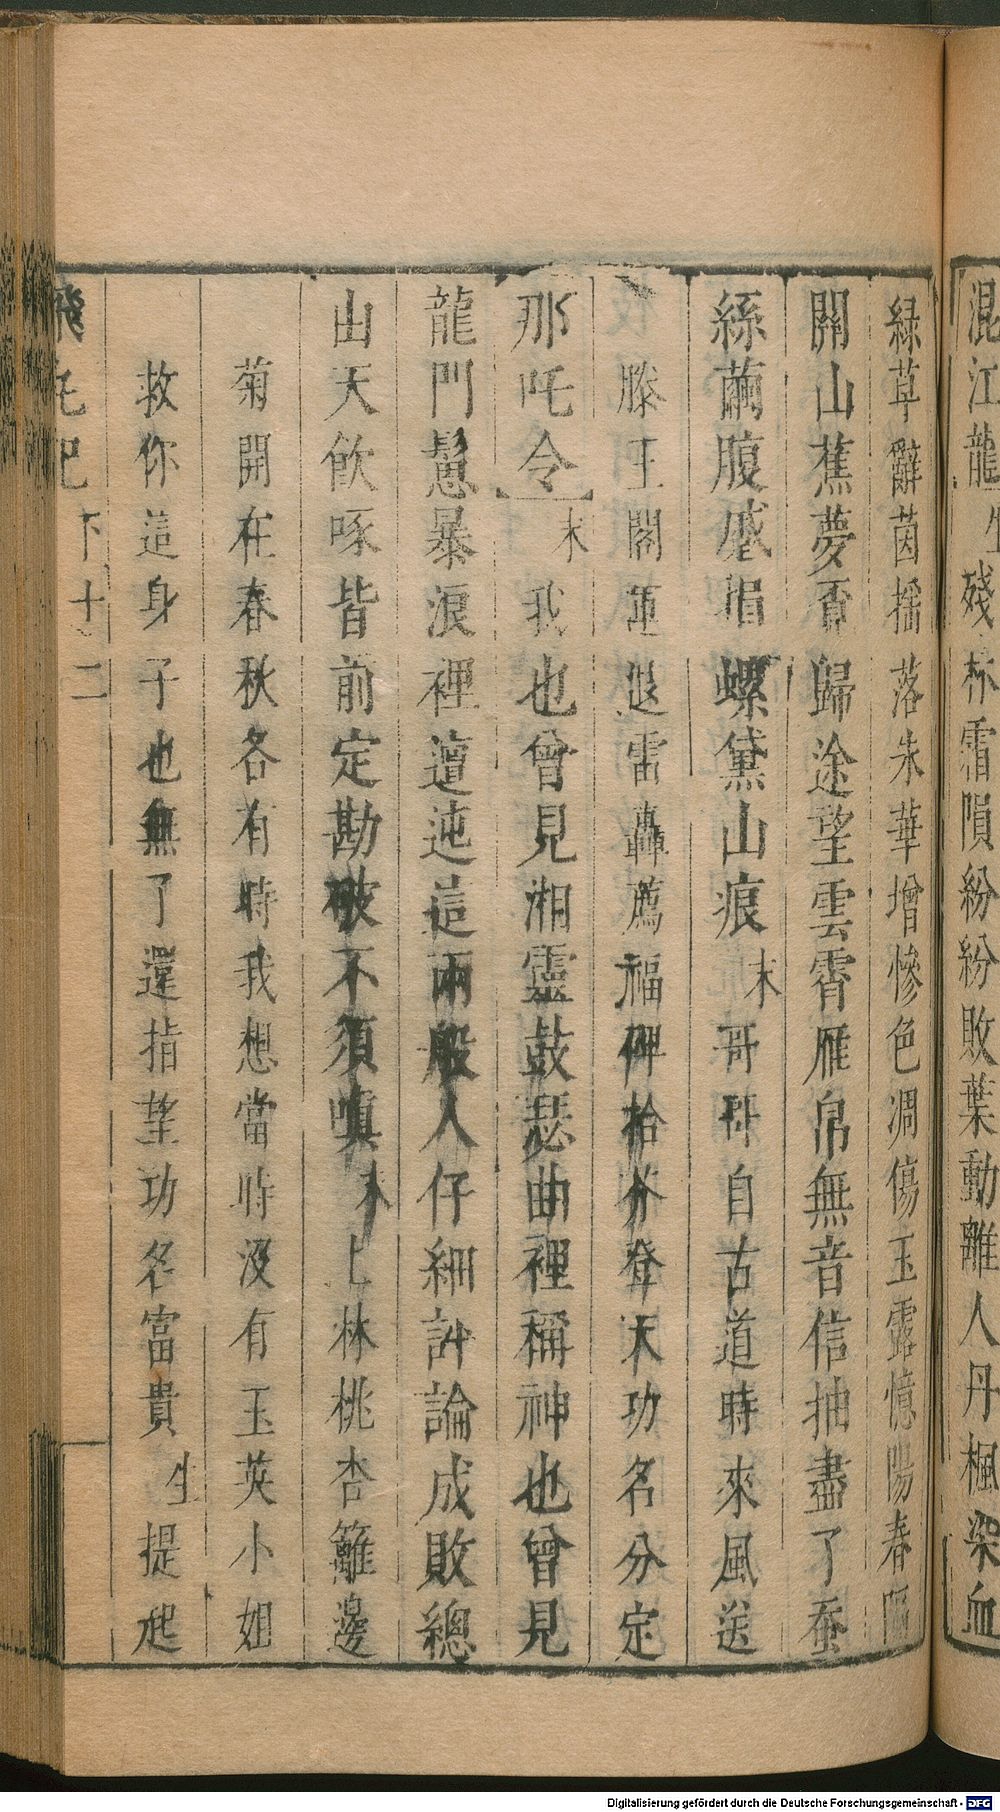 混江龍生殘杯霜隕紛紛敗葉動離人丹楓染血
綠草辭茵搖落朱華增慘色凋傷玉露憶陽春嘔
關山蕉夢香歸途望雲霄雁帛無音信抽盡了蚕
絲繭腹蹙損螺黛山痕末哥哥自古道時來風送
滕王閣運退雷轟薦福碑拾芥登天功名分定
那吒令末我也曾見湘靈鼓瑟曲裡稱神也曾見
龍門鬛暴浪裡邅迍這兩般人仔細評論成敗總
由天飲啄皆前定勘破不須嗔末上林桃杏籬邊
菊開在春秋各有時我想當時沒有玉英小姐
救你這身子也無了還指望功名富貴生提起
飛丸記 下 十二
Digitalisierung gefördert durch die Deutsche Forschungsgemeinschaft - DFG